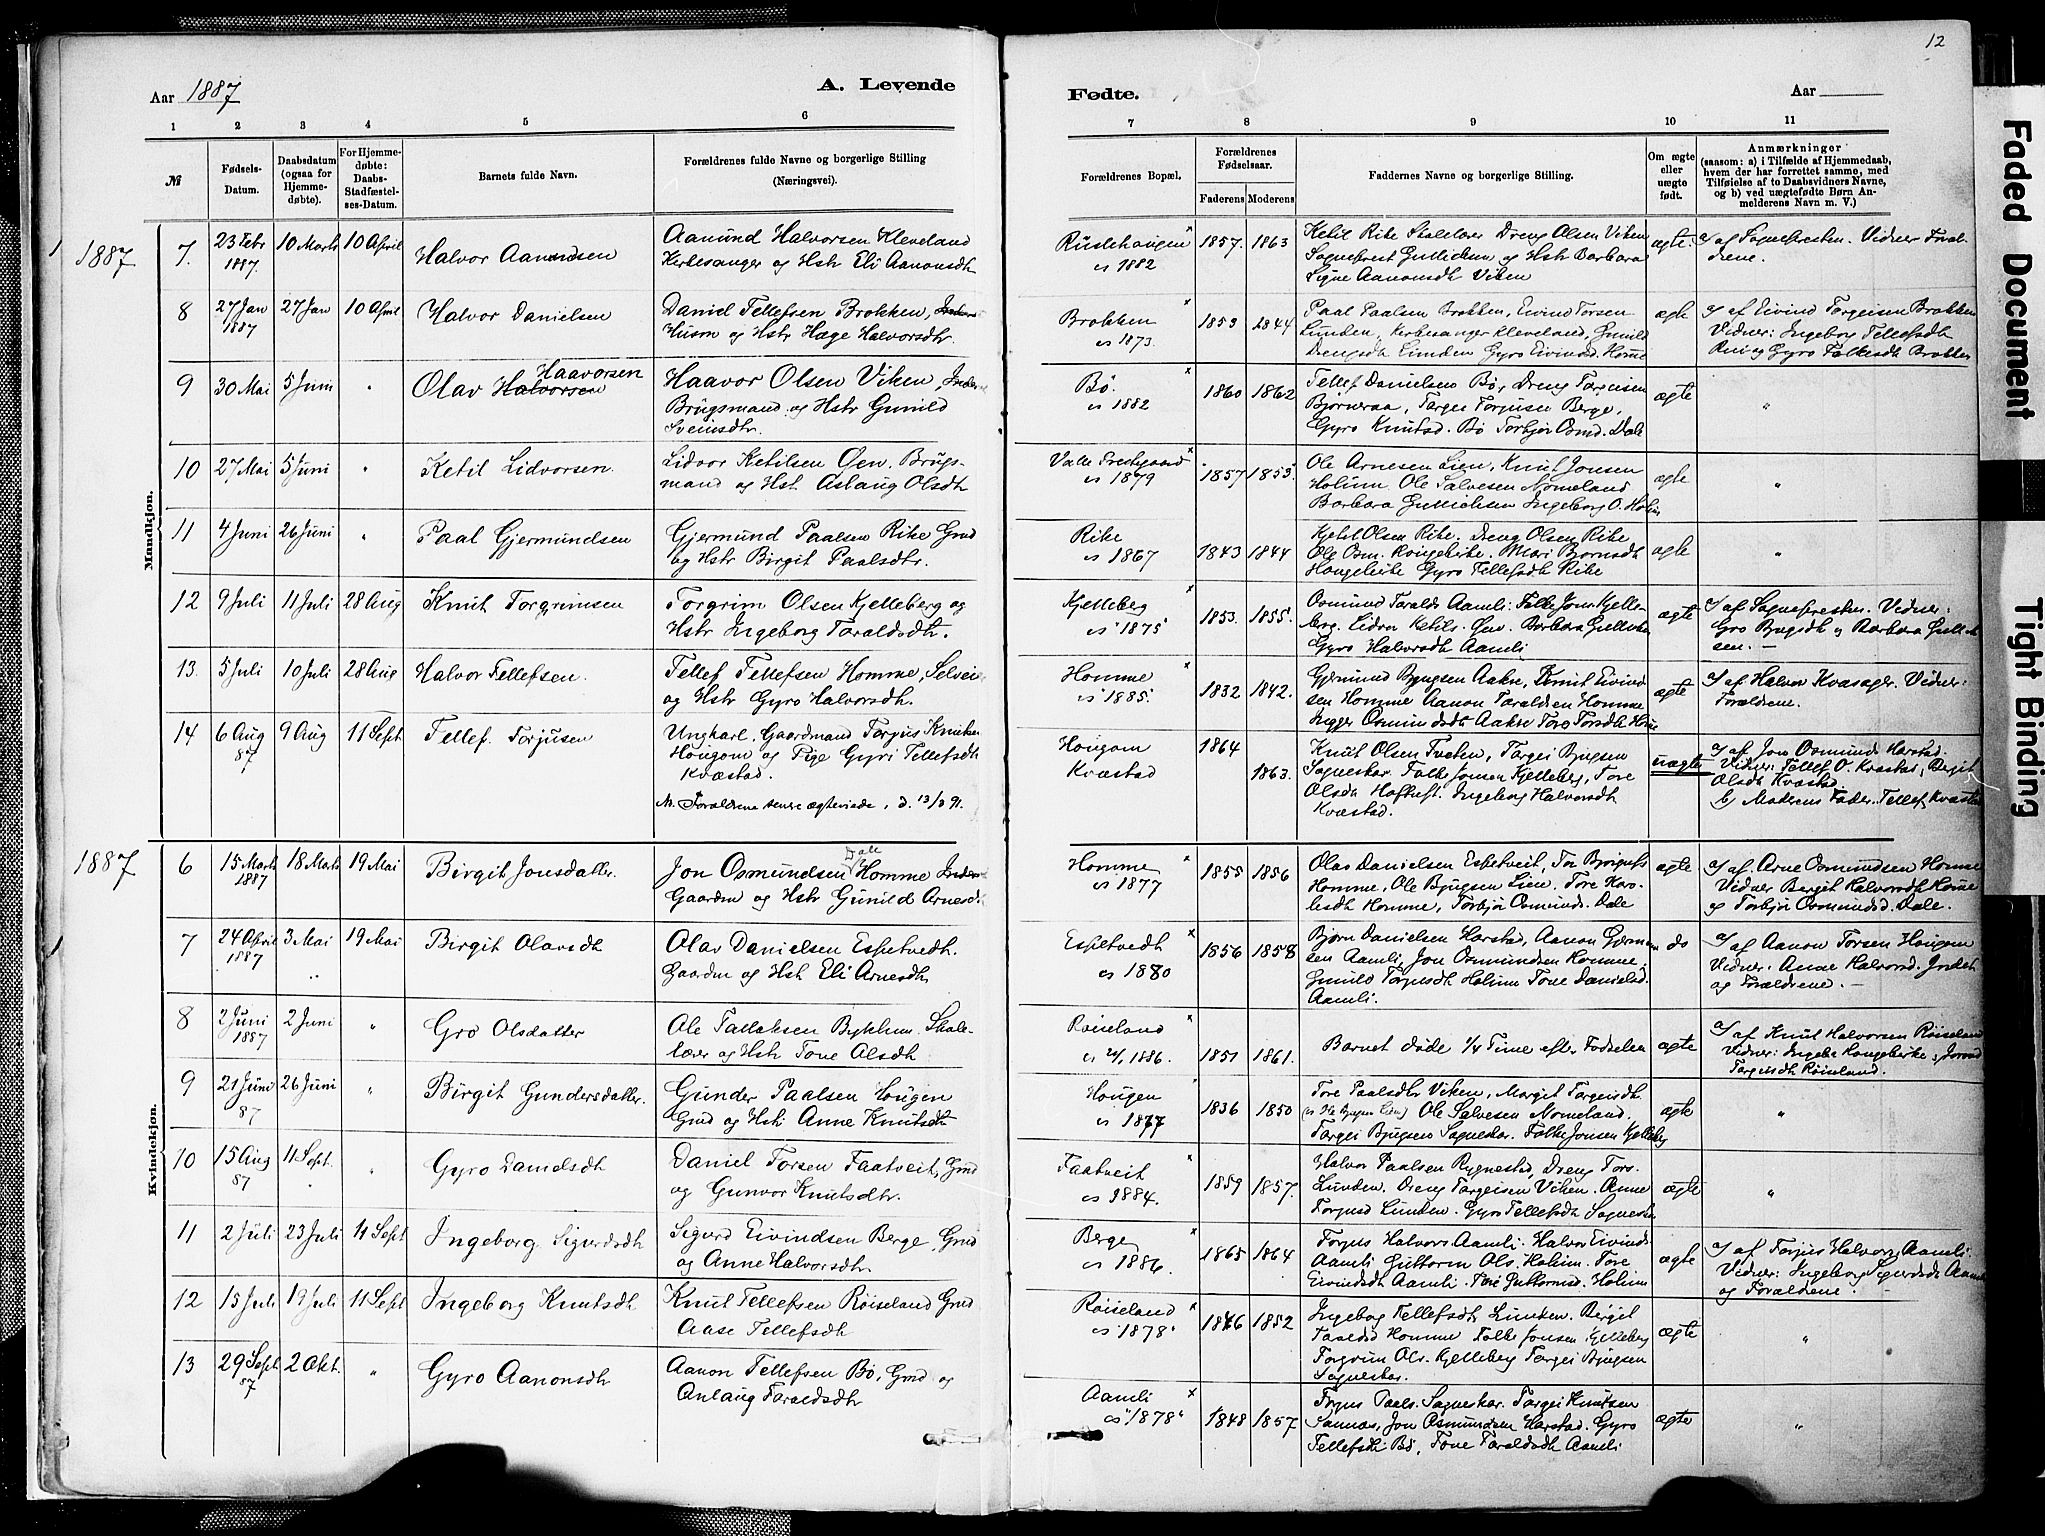 12
Aar 1887
A. Levende
Fødte.
Aar
1 2 3 4 5 6 7 8 9 10 11
№
Fødsels-Datum.
Daabsdatum (ogsaa for Hjemmedøbte).
For Hjemmedøbte: Daabs-Stadfæstelses-Datum.
Barnets fulde Navn.
Forældrenes fulde Navne og borgerlige Stilling (Næringsvei).
Forældrenes Bopæl.
Forældrenes Fødselsaar.
Faderens Moderens
Faddernes Navne og borgerlige Stilling.
Om ægte eller uægte født.
Anmærkninger
(saasom: a) i Tilfælde af Hjemmedaab, hvem der har forrettet samme, med Tilføielse af to Daabsvidners Navne, og b) ved uægtefødte Børn Anmelderens Navn m. V.)
Mandkjøn.
1887
7. 23 Febr 1887. 10 Marts 10 April Halvor Aanundsen
Aanund Halvorsen Kleveland
Kirkesanger og Hstr Eli Aanonsdtr
es 1882 1857. 1863
Ketil Rike Skolelærer Dreng Olsen Viken
Sogneprest Gullichsen og Hstr Barbara
Signe Aanonsdtr Viken
ægte. a/ af Sognepresten. Vidner Forældrene.
8 27 Jan 1887 27 Jan 10 April Halvor Danielsen
Daniel Tellefsen Brokken,
Husm og Hstr Hage Halvorsdtr.
Brokken es 1873. 1853
Paal Paalsen Brokken, Eivind Torsen
Lunden, Kirkesanger Kleveland, Gunild
Drengsdtr Lunden Gyro Eivindsd. Homme
ægte a/ af Eivind Torgeisen Brokken
Vidner: Ingeborg Tellefsdtr
og Gyro Folkesdtr Brokken
9 30 Mai 5 Juni " Olav Halvorsen Haavorsen
Haavor Olsen Viken,
Brugsmand og Hstr Gunild
Sveinsdtr.
Bø. es 1882 1860 1862
Tellef Danielsen Bø, Dreng Torgeisen
Bjørneraa, Targei Torjusen Berge,
Gyro Knutsd. Bø Torbjør Osmd. Dale
ægte "
10 27 Mai 5 Juni " Ketil Lidvorsen.
Lidvor Ketilsen Øen. Brugsmand og Hstr Aslaug Olsdtr
Valle Prestegaard es 1879 1857 1853.
Ole Arnesen Lien, Knut Jonsen
Holum. Ole Salvesen Nomeland
Barbara Gullichsen Ingeborg O. Holum
ægte "
11 4 Juni 26 Juni " Paal Gjermundsen
Gjermund Paalsen Rike Gmd
og Hstr Birgit Paalsdtr.
Rike es 1867 1843 1844
Kjetil Olsen Rike. Dreng Olsen Rike
Ole Osm. Hougekirke. Mari Bjornsdtr
Hougekirke Gyro Tellefsdtr Rike
ægte "
12 9 Juli 11 Juli 28 Aug Knut Torgrimsen
Torgrim Olsen Kjelleberg og
Hstr Ingeborg Taraldsdtr.
Kjelleberg es 1875 1853. 1855.
Osmund Taralds. Aamli. Folke Jons. Kjelleberg. Lidvor Ketils. Øen. Barbara Gullichsen
Gyro Halvorsdtr Aamli
ægte a/ af Sognepresten. Vidner:
Gro Bjugsdtr og Barbara Gullichsen. —
13. 5 Juli 10 Juli 28 Aug Halvor Tellefsen.
Tellef Tellefsen Homme, Selveier
og Hstr Gyro Halvorsdtr.
Homme es 1885. 1832 1842.
Gjermund Bjugsen Aakre, Knut Eivindsen Homme Aanon Taraldsen Homme
Osmundsdtr Aakre Toro Torsdtr Homme
ægte a/ af Halvor Kvasager. Vidner:
Forældrene.
14 6 Aug 87 9 Aug 11 Sept. Tellef. Torjusen
Ungkarl, Gaardmand Torjus Knutsen
Hougom og Pige Gyri Tellefsdtr
Kvæstad.
N. Forældrene senere ægteviede, d. 13/3 91.
Hougom Kvæstad 1864 1863.
Knut Olsen Tveten, Targei Bjugsen
Sagneskar. Folke Jonsen Kjelleberg, Tore
Olsdtr Hoftuft. Ingeborg Halvorsdtr
Kvæstad.
uægte a/ af Jon Osmunds. Harstad.
Vidner: Tellef O. Kvæstad, Bergit
Olsdtr Kvæstad.
b/ Moderens Fader. Tellef Kvæstad
Kvindekjøn.
1887
6 15 Marts 1887 18 Marts 19 Mai Birgit Jonsdatter.
Jon Osmundsen Dale Homme
Gaardm og Hstr Gunild Arnesdtr
Homme es 1877 1855 1856
Olav Danielsen Espetveit, Tor Bjørgufs.
Homme, Ole Bjugsen Lien. Tore Karolesdtr Homme, Torbjør Osmunds. Dale
ægte a/ af Arne Osmundsen Homme
Vidner Bergit Halvorsdtr Homme
og Torbjør Osmundsd. Dale.
7 24 April 1887 3 Mai 19 Mai Birgit Olavsdtr
Olav Danielsen Espetvedt.
Gaardm og Hstr Eli Arnesdtr
Espetvedt es 1880 1856 1858
Bjørn Danielsen Harstad, Aanon Gjermundsen Aamli, Jon Osmundsen Homme.
Gunild Torjusdtr Holum Tone Danielsd.
Aamli.
do a/ af Aanon Torsen Hougom
Vidner. Anne Halvorsd.
og Forældrene. —
8 2 Juni 1887 2 Juni " Gro Olsdatter
Ole Tallaksen Bykle. Skolelærer og Hstr Tone Olsdtr
Røiseland 1886. 1851 1861.
Barnet døde 1/4 Time efter Fødselen
ægte a/ af Knut Halvorsen Røiseland
Vidner: Hougekirke,
Torgeisdtr Røiseland.
9 21 Juni 87 26 Juni " Birgit Gundersdatter.
Gunder Paalsen Hougen
Gmd og Hstr Anne Knutsdtr
Hougen es 1877 1836 1850
Tore Paalsdtr Viken, Margit Torgeisdtr
Ole Salvesen Nomeland.
Targei Bjugsen Sagneskar. Folke Jonsen Kjelleberg
ægte "
10 15 Aug 87 11 Sept. " Gyro Danielsdtr
Daniel Torsen Faatveit, Gmd
og Gunvor Knutsdtr.
Faatveit es 1884. 1859 1857.
Halvor Paalsen Rygnestad, Dreng Tors.
Lunden. Dreng Targeisen Viken. Anne
Torjusd Lunden. Gyro Tellefsdtr Sagneskar
ægte "
11 2 Juli 23 Juli 11 Sept Ingeborg Sigurdsdtr
Sigurd Eivindsen Berge, Gmd
og Anne Halvorsdtr.
Berge es 1886. 1865 1864
Torjus Halvors. Aamli. Halvor Eivinds.
Aamli Guttorm Ols. Holum. Tore
Eivindsdtr Aamli. Tore Guttormsd. Holum
ægte a/ af Torjus Halvors. Aamli.
Vidner: Ingeborg Sigurdsdtr Aamli
og Forældrene.
12 15 Juli 19 Juli 11 Sept Ingeborg Knutsdtr
Knut Tellefsen Røiseland Gmd
Aase Tellefsdtr
Røiseland es 1878 1846 1852
Ingeborg Tellefsdtr Lunden. Bergit
Homme Folke Jonsen. Kjelleberg
Torgrim Ols. Kjelleberg Targei Bjugsen
Sagneskar.
ægte "
13 29 Sept 87 2 Okt. " Gyro Aanonsdtr
Aanon Tellefsen Bø, Gmd og
Anlaug Taraldsdtr
Aamli es 1878 1848 1857
Torjus Paals. Sagneskar. Targei Knutsen
Sannæs, Jon Osmundsen Harstad. Gyro
Tellefsdtr Bø, Tone Taraldsdtr Aamli
ægte "
Faded Document
Tight Binding